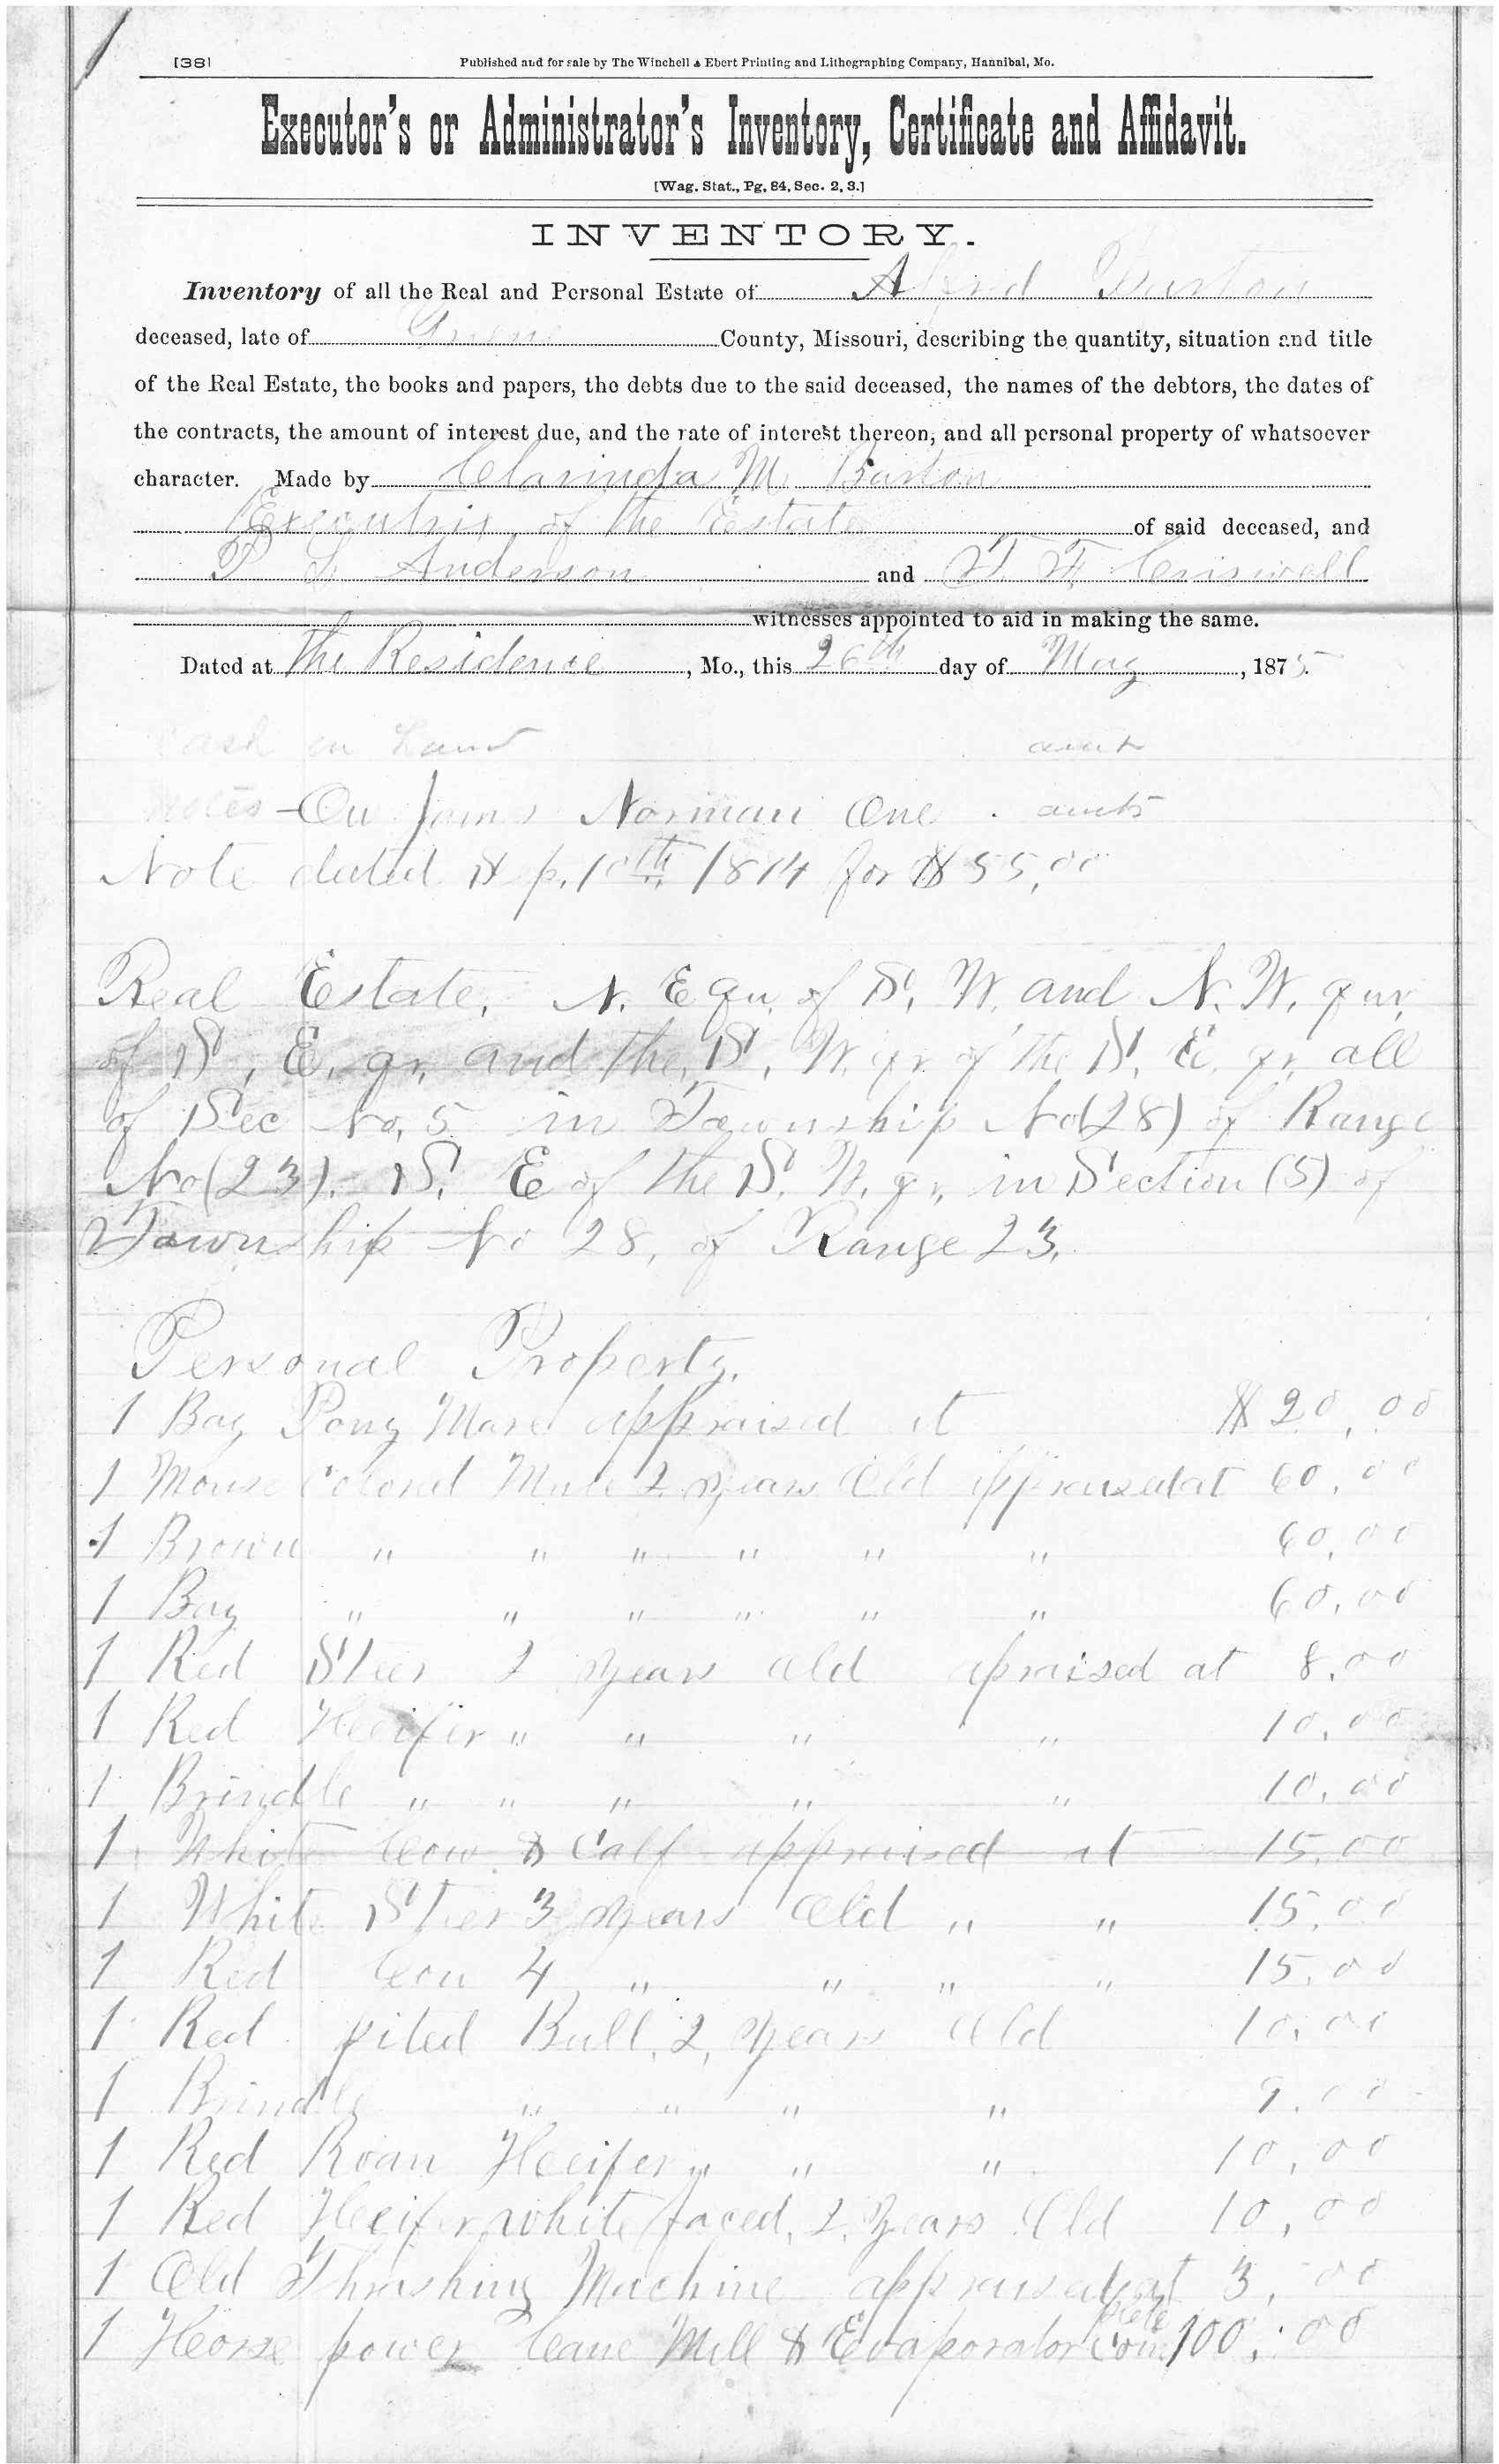 [38]
Published and for sale by The Winchell & Ebert Printing and Lithographing Company, Hannibal, Mo.
Executor's or Administrator's Inventory, Certificate and Affidavit.
[Wag. Stat., Pg. 84, Sec. 2, 3.]
INVENTORY.
Inventory of all the Real and Personal Estate of Alfred Burton
deceased, late of Greene County, Missouri, describing the quantity, situation and title
of the Real Estate, the books and papers, the debts due to the said deceased, the names of the debtors, the dates of
the contracts, the amount of interest due, and the rate of interest thereon, and all personal property of whatsoever
character. Made by Clarinda M Burton
Executrix of the Estate of said deceased, and
P L Anderson and T. F. Criswell
witnesses appointed to aid in making the same.
Dated at The Residence, Mo., this 26th day of May, 1875.
Cash on hand
Notes - On James Norman One
Note dated Sep. 10th 1874 for $55,00
Real Estate, N. E qu. of S. W. and N. W. qur,
of S, E. qr, and the, S, W. qr. of the S. E. qr, all
of Sec No, 5 in Township No (28) of Range
No (23). S. E of the S. W. qr, in Section (5) of
Township No 28, of Range 23.
Personal Property.
1 Bay Pony Mare appraised at $20,00
1 Mouse Colored Mule 2 years Old appraised at 60,00
1 Brown " " " " " " 60,00
1 Bay " " " " " " 60,00
1 Red Steer 2 years old apraised at 8,00
1 Red Heeifer " " " " 10,00
1 Brindle " " " " " 10,00
1 White Cow & Calf appraised at 15,00
1 White Steer 3 years Old " " 15,00
1 Red Cow 4 " " " " 15,00
1 Red pited Bull, 2, years Old 10,00
1 Brindle " " " " 9,00
1 Red Roan Heeifer " " " 10,00
1 Red Heeifer white faced, 2, years Old 10,00
1 Old Thrashing Machine appraised at 3,00
1 Horse power Cane Mill & Evaporator Complete 100,00